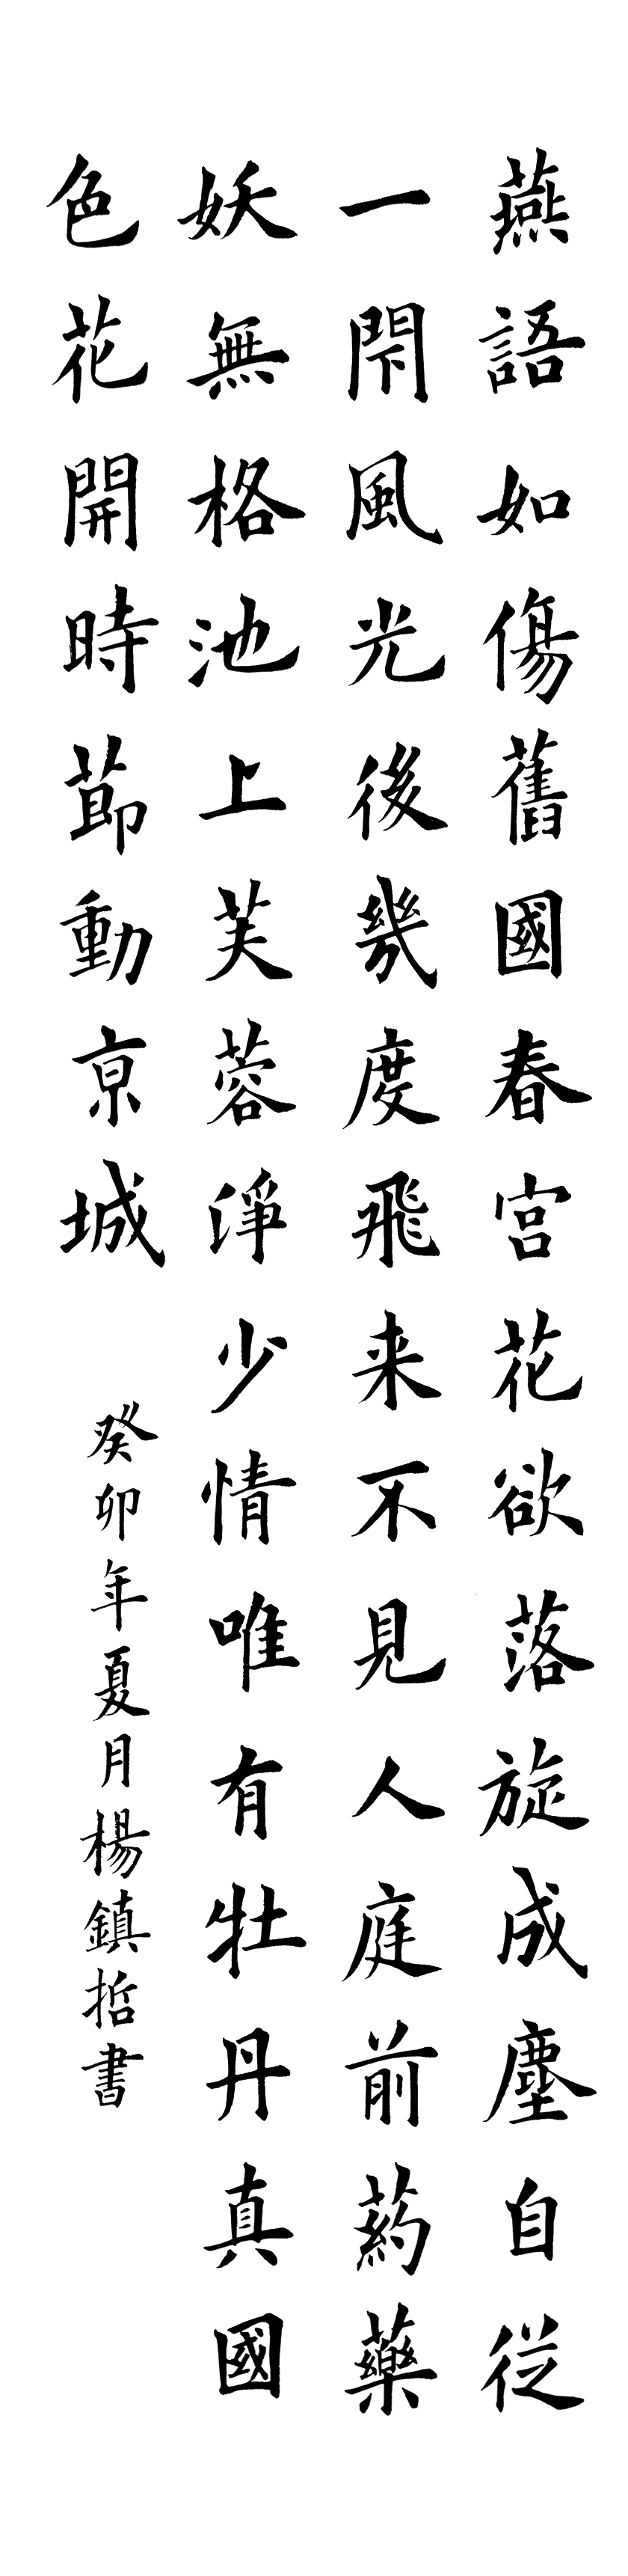 燕語如傷舊國春宮花欲落旋成塵自從
一閇風光後幾度飛来不見人庭前葯藥
妖無格池上芙蓉淨少情唯有牡丹真國
色花開時節動京城
癸卯年夏月楊鎮哲書